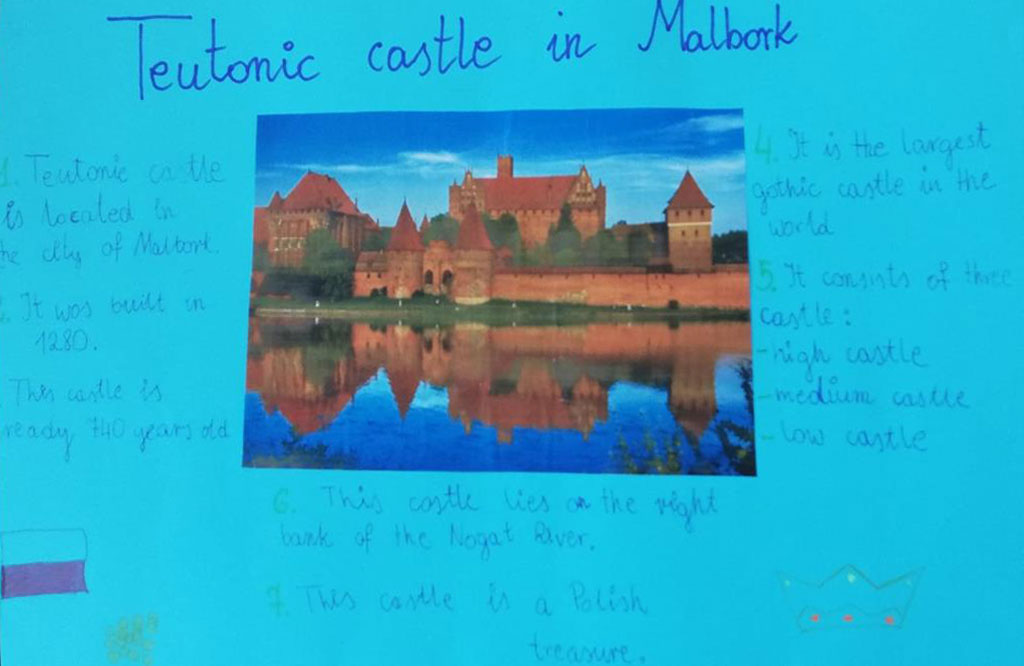 Teutonic castle in Malbork
1. Teutonic castle
is located in
he city of Malbork.
2. It was built in
1280.
This castle is
ready 740 years old
4. It is the largest
gothic castle in the
world
5. It consists of three
castle:
-high castle
-medium castle
-low castle
6. This castle lies on the right
bank of the Nogat River.
7. This castle is a Polish
treasure.